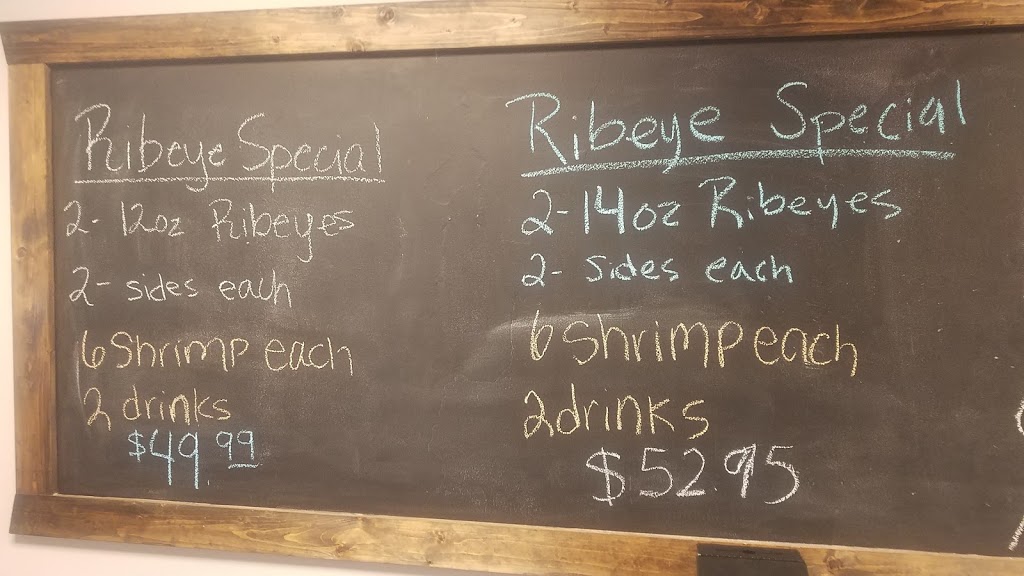 Ribeye Special
2- 12oz Ribeyes
2- sides each
6 Shrimp each
2 drinks
$49.99
Ribeye Special
2-14oz Ribeyes
2- sides each
6 Shrimp each
2 drinks
$52.95